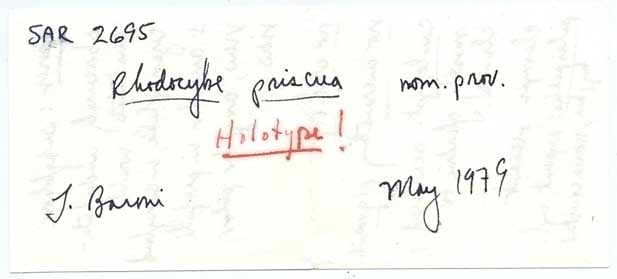 SAR 2695
Rhodocybe priscua nom. prov.
Holotype!
T. Baroni May 1979